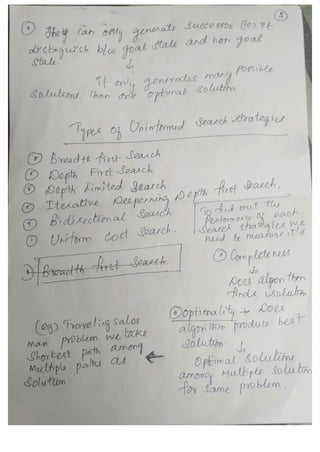 They can only generate Successor (or) it
distinguish b/w goal State and non goal
State.
↓
it only generates many possible
Solutions than one optimal solution
Types of Uninformed Search Strategies
Breadth first Search
Depth First Search
Depth Limited Search
Iterative Deepenning Depth first Search.
Bidirectional Search
Uniform Cost Search.
To find out the
Performance of each
Search strategies we
need to measure it's
Breadth first Search.
Completeness
↓
Does algorithm
finds solution
Optimality → Does
algorithm produce best
Solution.
↓
Optimal Solutions
among Multiple Solution
for same problem.
(eg) Traveling sales
man problem we take
Shortest path among
Multiple paths as ←
Solution